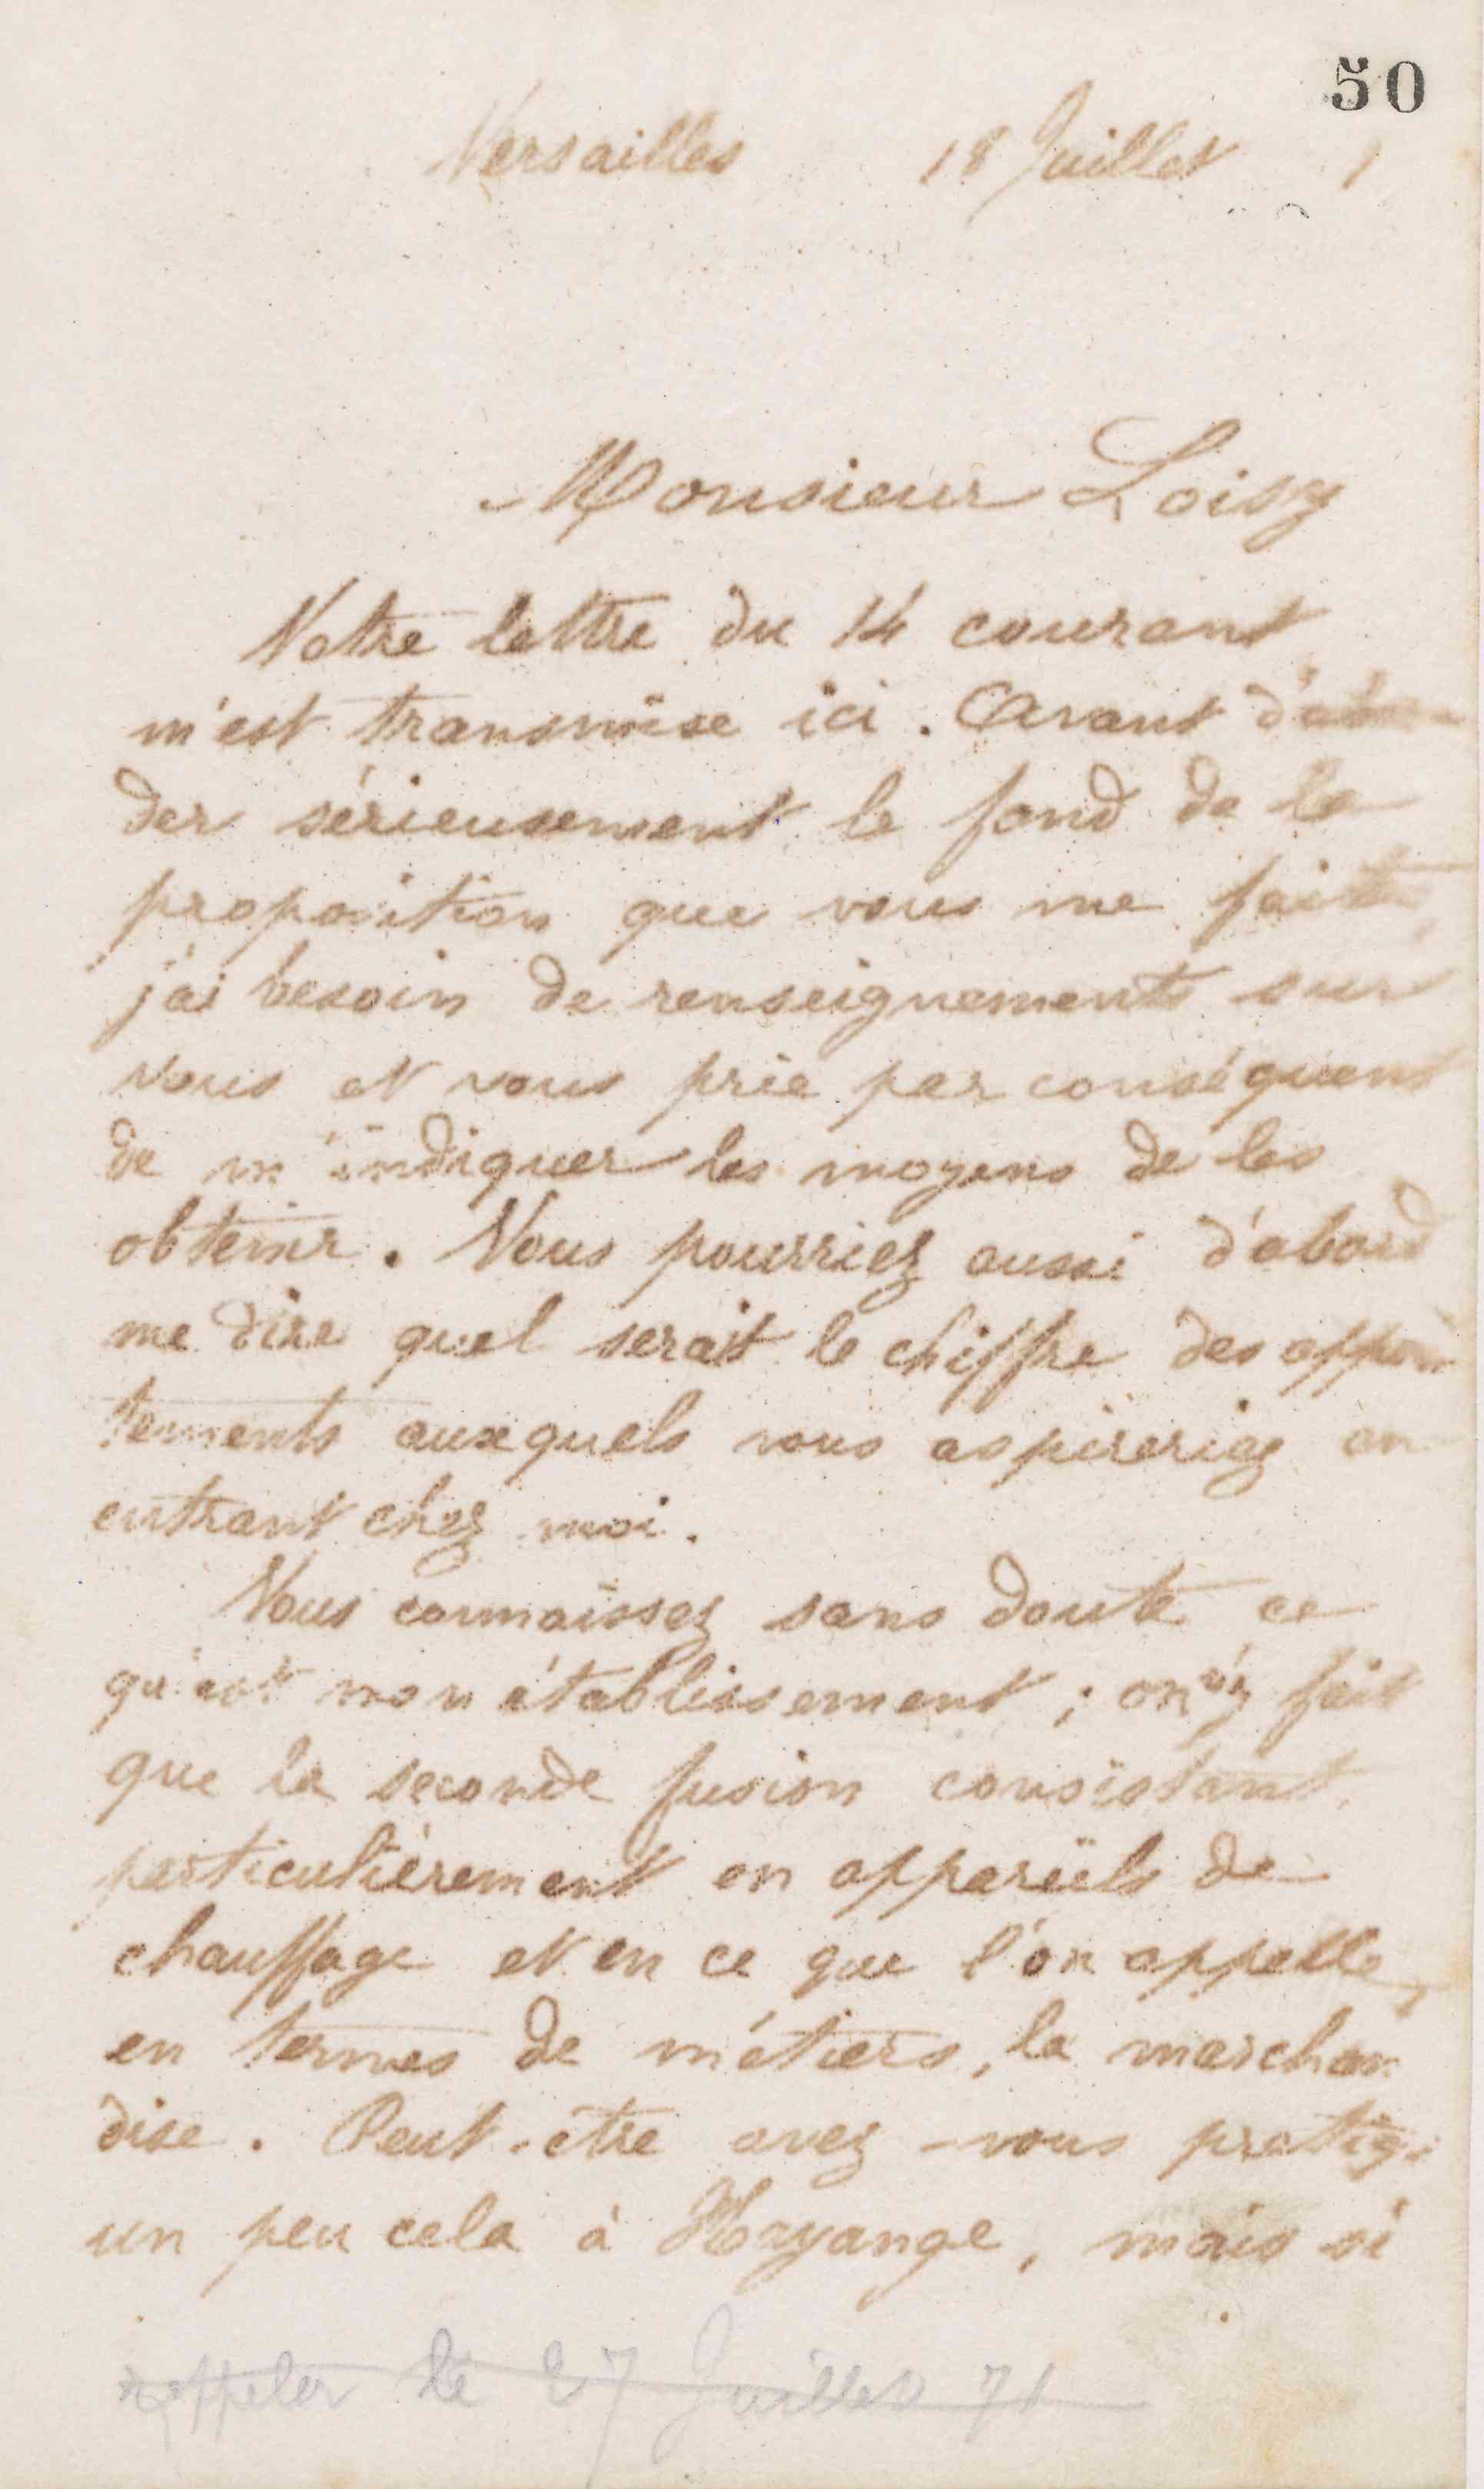 50
Versailles 18 Juillet 1
Monsieur Loisy
Votre lettre du 14 courant
m'est transmise ici. Avant
der sérieusement le fond de la
proposition que vous me faite
j'ai besoin de renseignements sur
vous et vous prie par conséquent
de m'indiquer les moyens de les
obtenir. Vous pourriez aussi d'abord
me dire quel serait le chiffre des appoin
tements auxquels vous aspireriez en
entrant chez moi.
Vous connaissez sans doute ce
qu'est mon établissement ; on n'y fait
que la seconde fusion consistant
particulièrement en appareils de
chauffage et en ce que l'on appelle,
en termes de métiers, la marchan
dise. Peut-être avez-vous pratiq
un peu cela à Hayange, mais si
rappeler le 27 Juillet 71